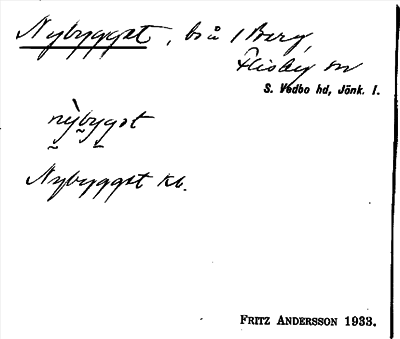 Nybygget, bs å 1 Berg,
Flisby sn
S. Vedbo hd, Jönk. l.
nỳbygət
Nybygget kb.
FRITZ ANDERSSON 1933.